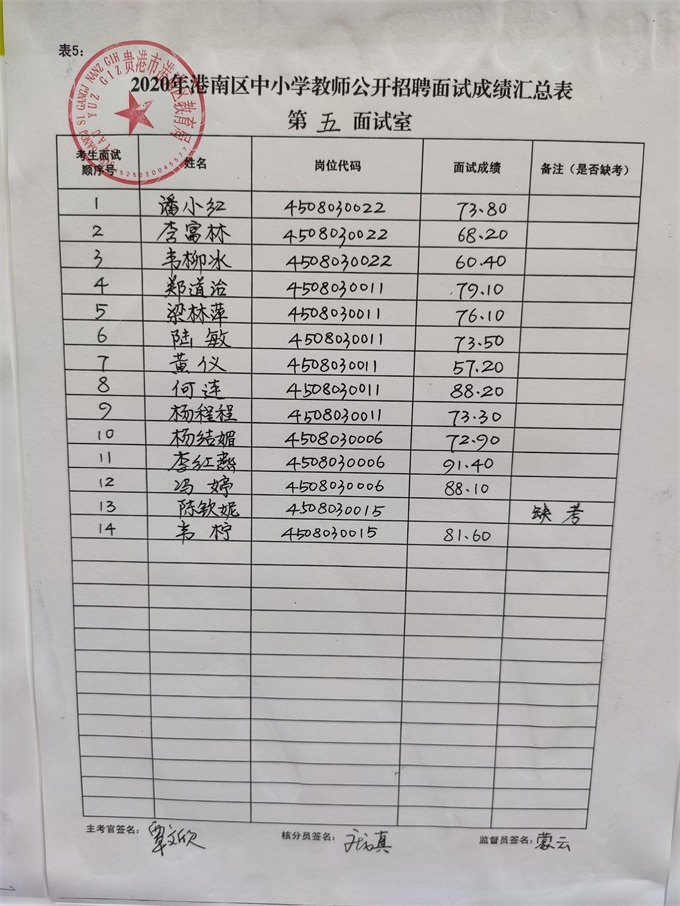 表5:
2020年港南区中小学教师公开招聘面试成绩汇总表
第 五 面试室
考生面试顺序号 姓名 岗位代码 面试成绩 备注（是否缺考）
1 潘小红 4508030022 73.80
2 李富林 4508030022 68.20
3 韦柳冰 4508030022 60.40
4 郑道治 4508030011 79.10
5 梁林萍 4508030011 76.10
6 陆敏 4508030011 73.50
7 黄仪 4508030011 57.20
8 何连 4508030011 88.20
9 杨程程 4508030011 73.30
10 杨结媚 4508030006 72.90
11 李红燕 4508030006 91.40
12 冯婷 4508030006 88.10
13 陈钦妮 4508030015 缺考
14 韦柠 4508030015 81.60
主考官签名: 覃文欣 核分员签名: 监督员签名: 蒙云
贵港市港南区教育局